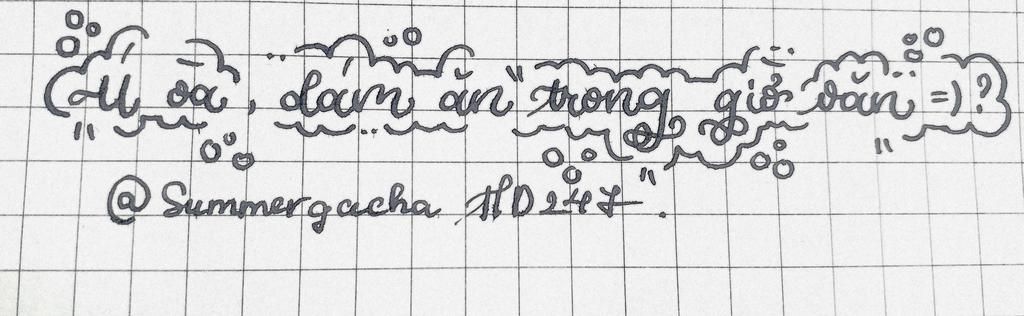 Ú òa, dám ăn "trong giờ văn" =)?
@Summergacha HD247.